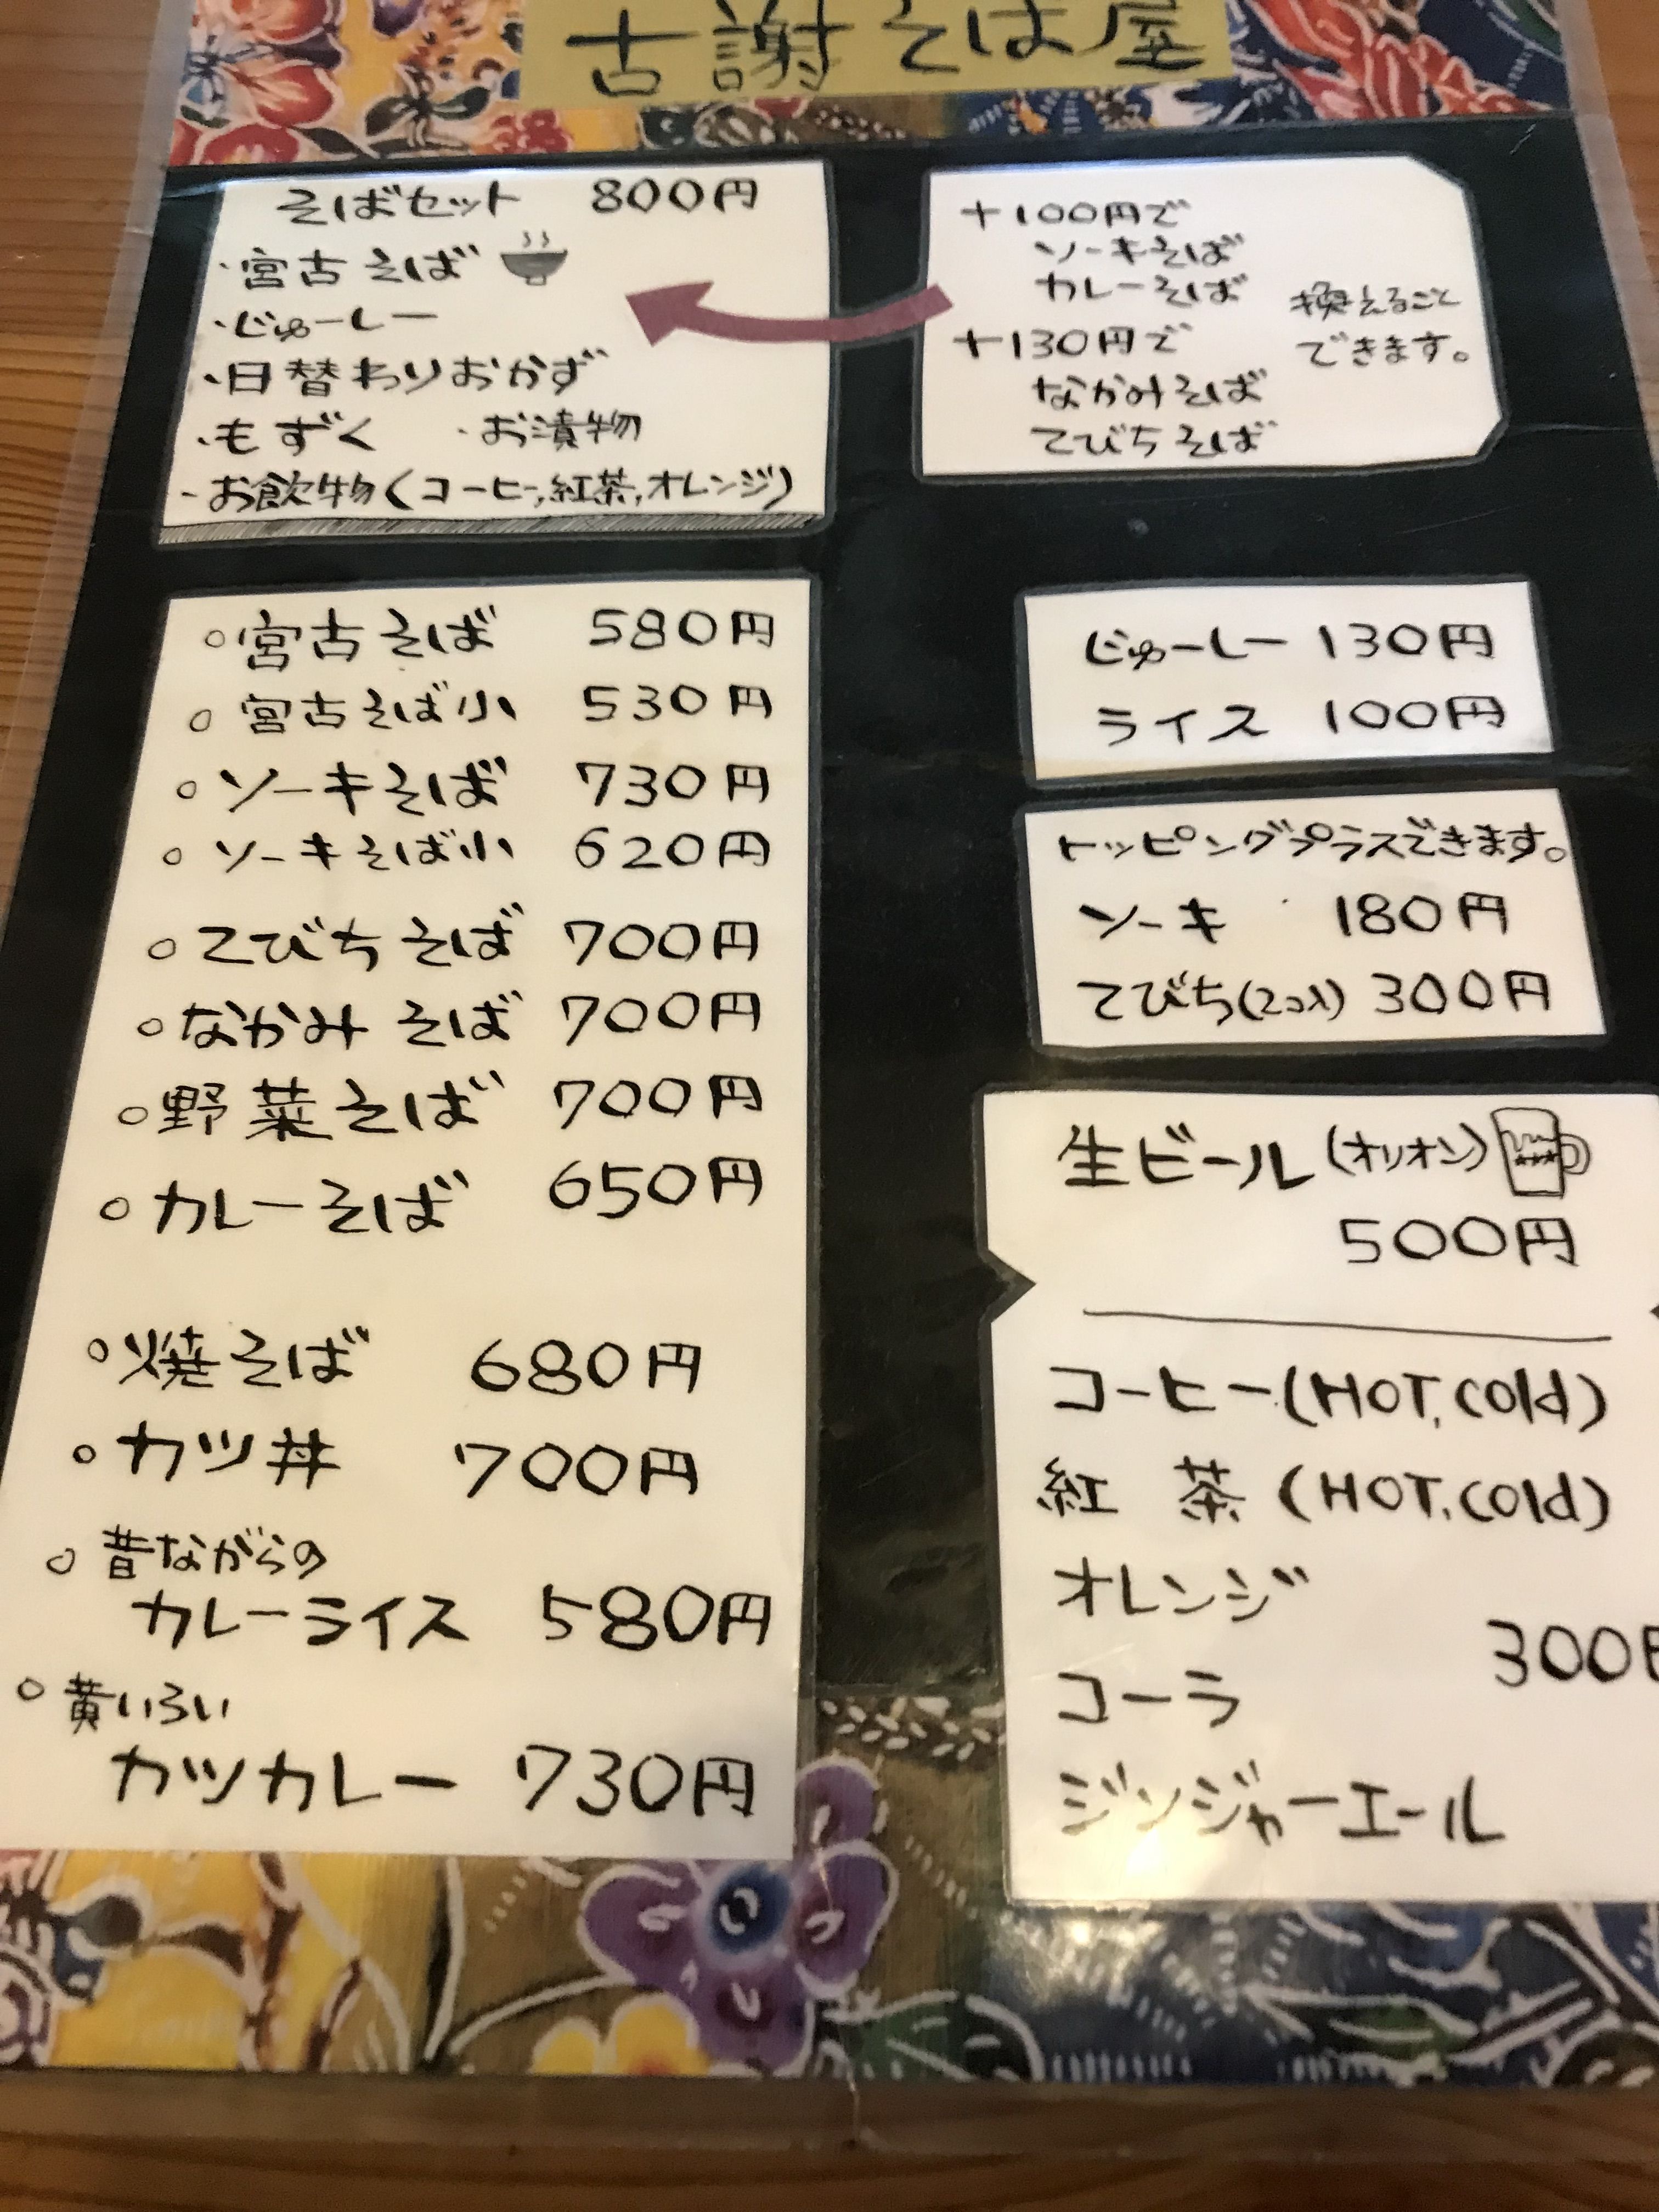 古謝そば屋
そばセット 800円
・宮古そば
・じゅーしー
・日替わりおかず
・もずく ・お漬物
・お飲物(コーヒー,紅茶,オレンジ)
+100円で
ソーキそば
カレーそば
+130円で
なかみそば
てびちそば
換えること
できます。
○宮古そば 580円
○宮古そば小 530円
○ソーキそば 730円
○ソーキそば小 620円
○てびちそば 700円
○なかみそば 700円
○野菜そば 700円
○カレーそば 650円
○焼そば 680円
○カツ丼 700円
○昔ながらの
カレーライス 580円
○黄いろい
カツカレー 730円
じゅーしー 130円
ライス 100円
トッピングプラスできます。
ソーキ 180円
てびち(2コ入) 300円
生ビール(オリオン)
500円
コーヒー(HOT,Cold)
紅茶(HOT,Cold)
オレンジ
300円
コーラ
ジンジャーエール